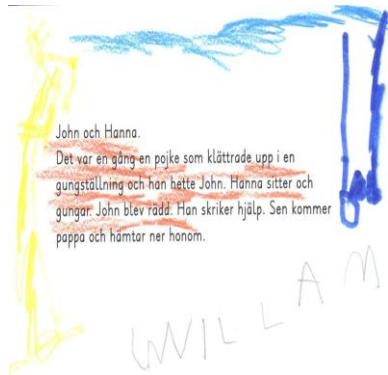 John och Hanna.
Det var en gång en pojke som klättrade upp i en
gungställning och han hette John. Hanna sitter och
gungar. John blev rädd. Han skriker hjälp. Sen kommer
pappa och hämtar ner honom.
WILLAM